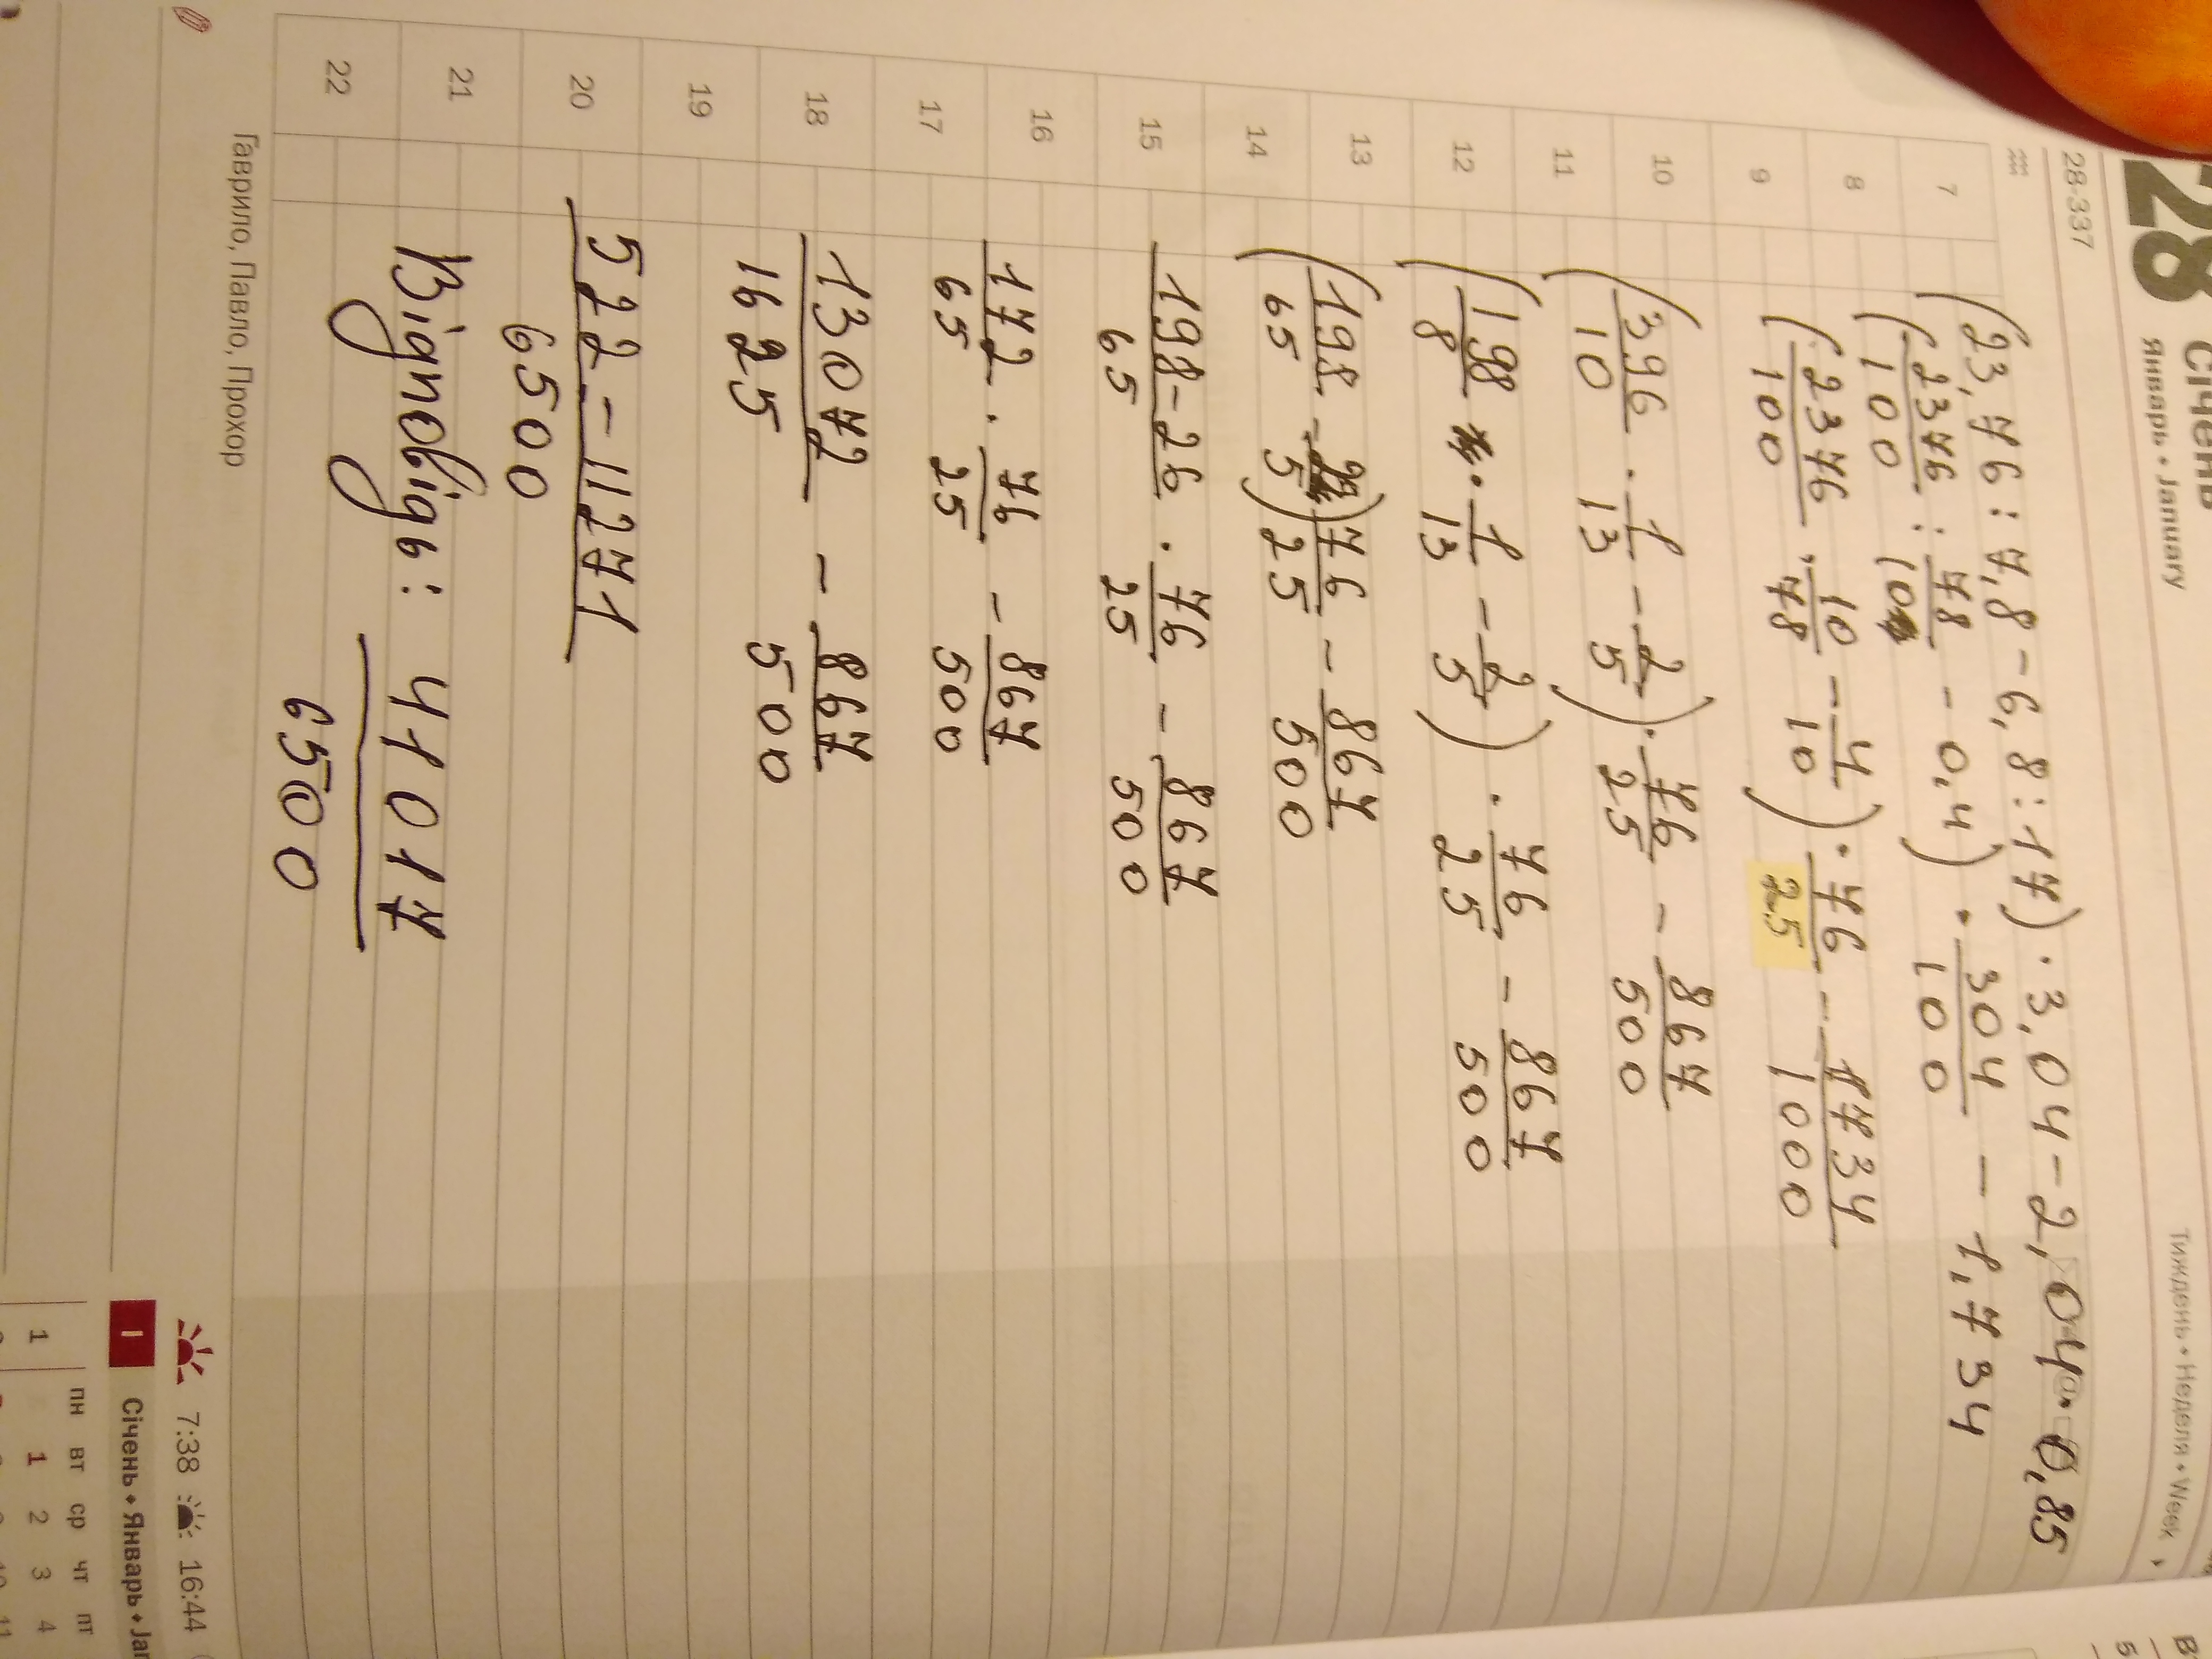 28
Січень
Январь • January
Тиждень • Неделя • Week
28-337
(23,76 : 7,8 - 6,8 : 17) · 3,04 - 2,04 · 0,85
7
(2376/100 : 78/10 - 0,4) · 304/100 - 1,734
8
(2376/100 · 10/78 - 4/10) · 76/25 - 1734/1000
9
10
(396/10 · 1/13 - 2/5) · 76/25 - 867/500
11
12
(198/8 · 1/13 - 2/5) · 76/25 - 867/500
13
(198/65 - 2/5) 76/25 - 867/500
14
15
198-26/65 · 76/25 - 867/500
16
172/65 · 76/25 - 867/500
17
18
13072/1625 - 867/500
19
20
522-11271/6500
21
Відповідь: 41017/6500
22
Гаврило, Павло, Прохор
7:38 16:44
I Січень • Январь • Jan
пн вт ср чт пт
1 1 2 3 4